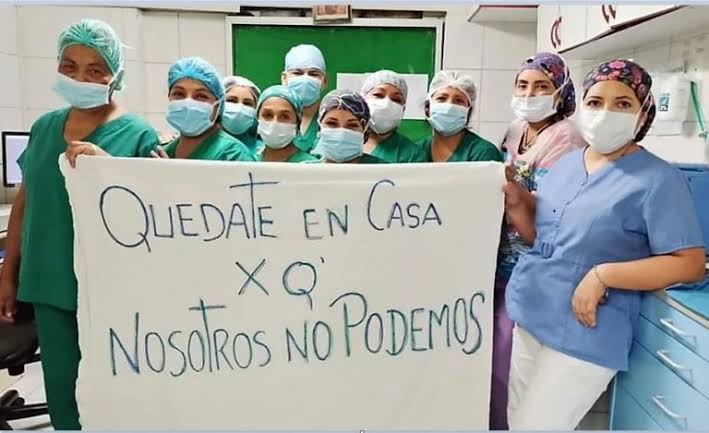 QUEDATE EN CASA
X Q'
NOSOTROS NO PODEMOS